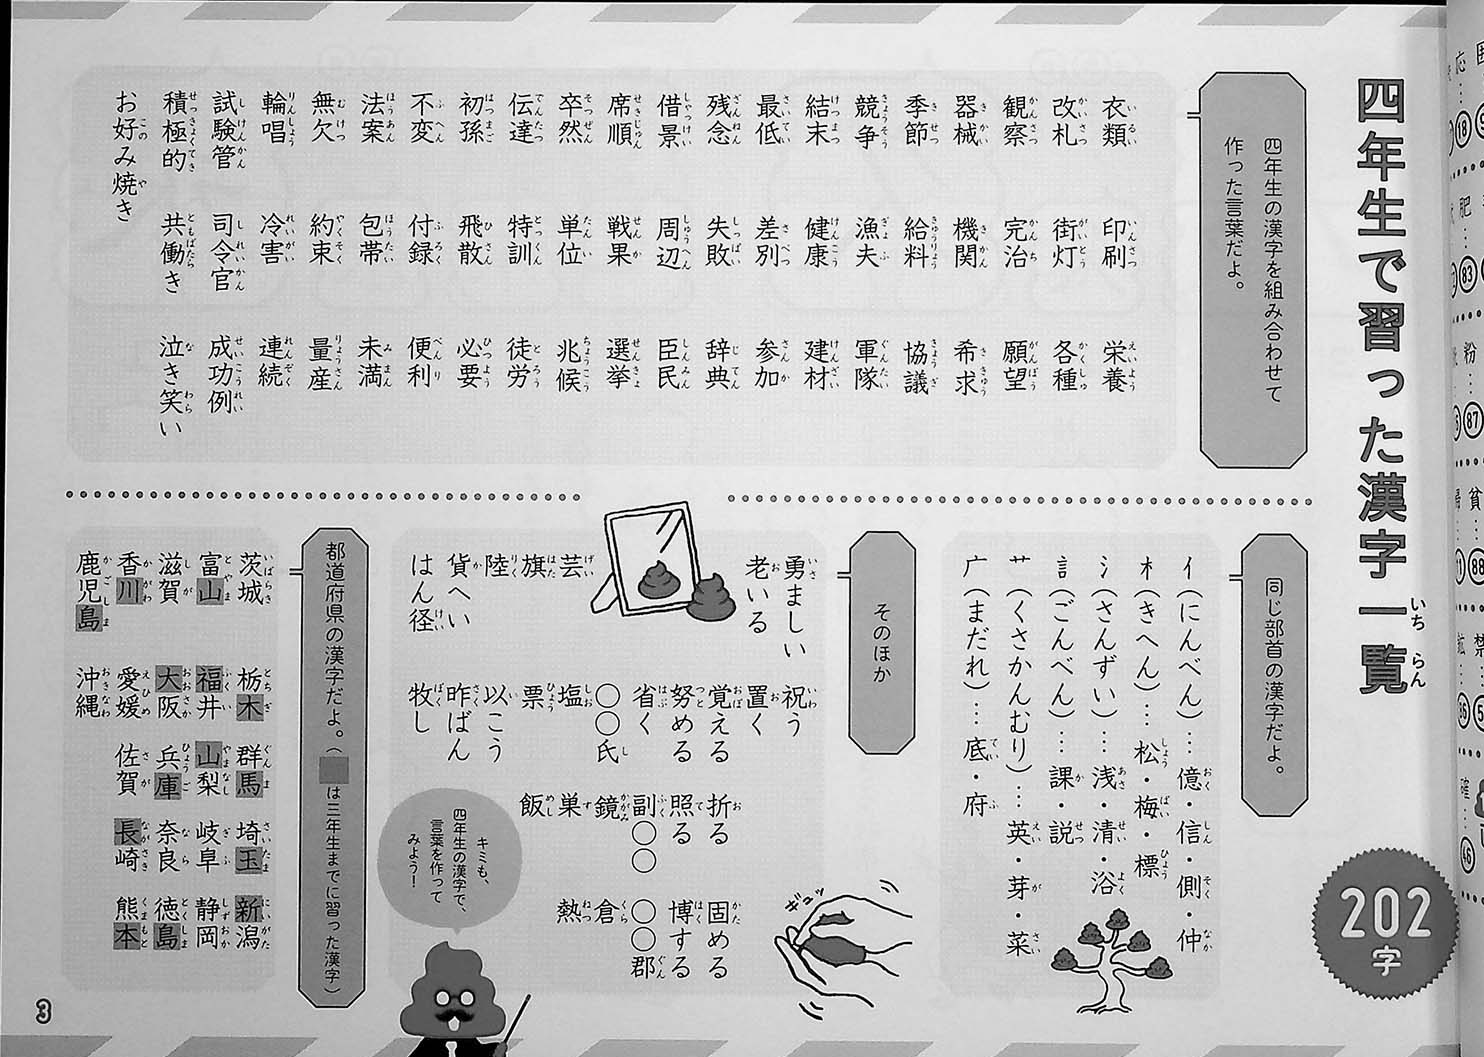 四年生で習った漢字一覧
いちらん
202字
四年生の漢字を組み合わせて
作った言葉だよ。
衣類 印刷 栄養
改札 街灯 各種
観察 完治 願望
器械 機関 希求
季節 給料 協議
競争 漁夫 軍隊
結末 健康 建材
最低 差別 参加
残念 失敗 辞典
借景 周辺 臣民
席順 戦果 選挙
卒然 単位 兆候
伝達 特訓 徒労
初孫 飛散 必要
不変 付録 便利
法案 包帯 未満
無欠 約束 量産
輪唱 冷害 連続
試験管 司令官 成功例
積極的 共働き 泣き笑い
お好み焼き
同じ部首の漢字だよ。
亻(にんべん)…億・信・側・仲
木(きへん)…松・梅・標
氵(さんずい)…浅・清・浴
訁(ごんべん)…課・説
艹(くさかんむり)…英・芽・菜
广(まだれ)…底・府
そのほか
勇ましい 祝う 折る 固める
老いる 置く 照る 博する
覚える 副〇〇 〇〇郡
努める 鏡 倉
省く 巣 熱
〇〇氏 飯
芸 塩
旗 票
陸 以こう
貨へい 昨ばん
はん径 牧し
ギュッ
キミも、
四年生の漢字で、
言葉を作って
みよう!
都道府県の漢字だよ。(■は三年生までに習った漢字)
茨城 栃木 群馬 埼玉 新潟
富山 福井 山梨 岐阜 静岡
滋賀 大阪 兵庫 奈良 徳島
香川 愛媛 佐賀 長崎 熊本
鹿児島 沖縄
3